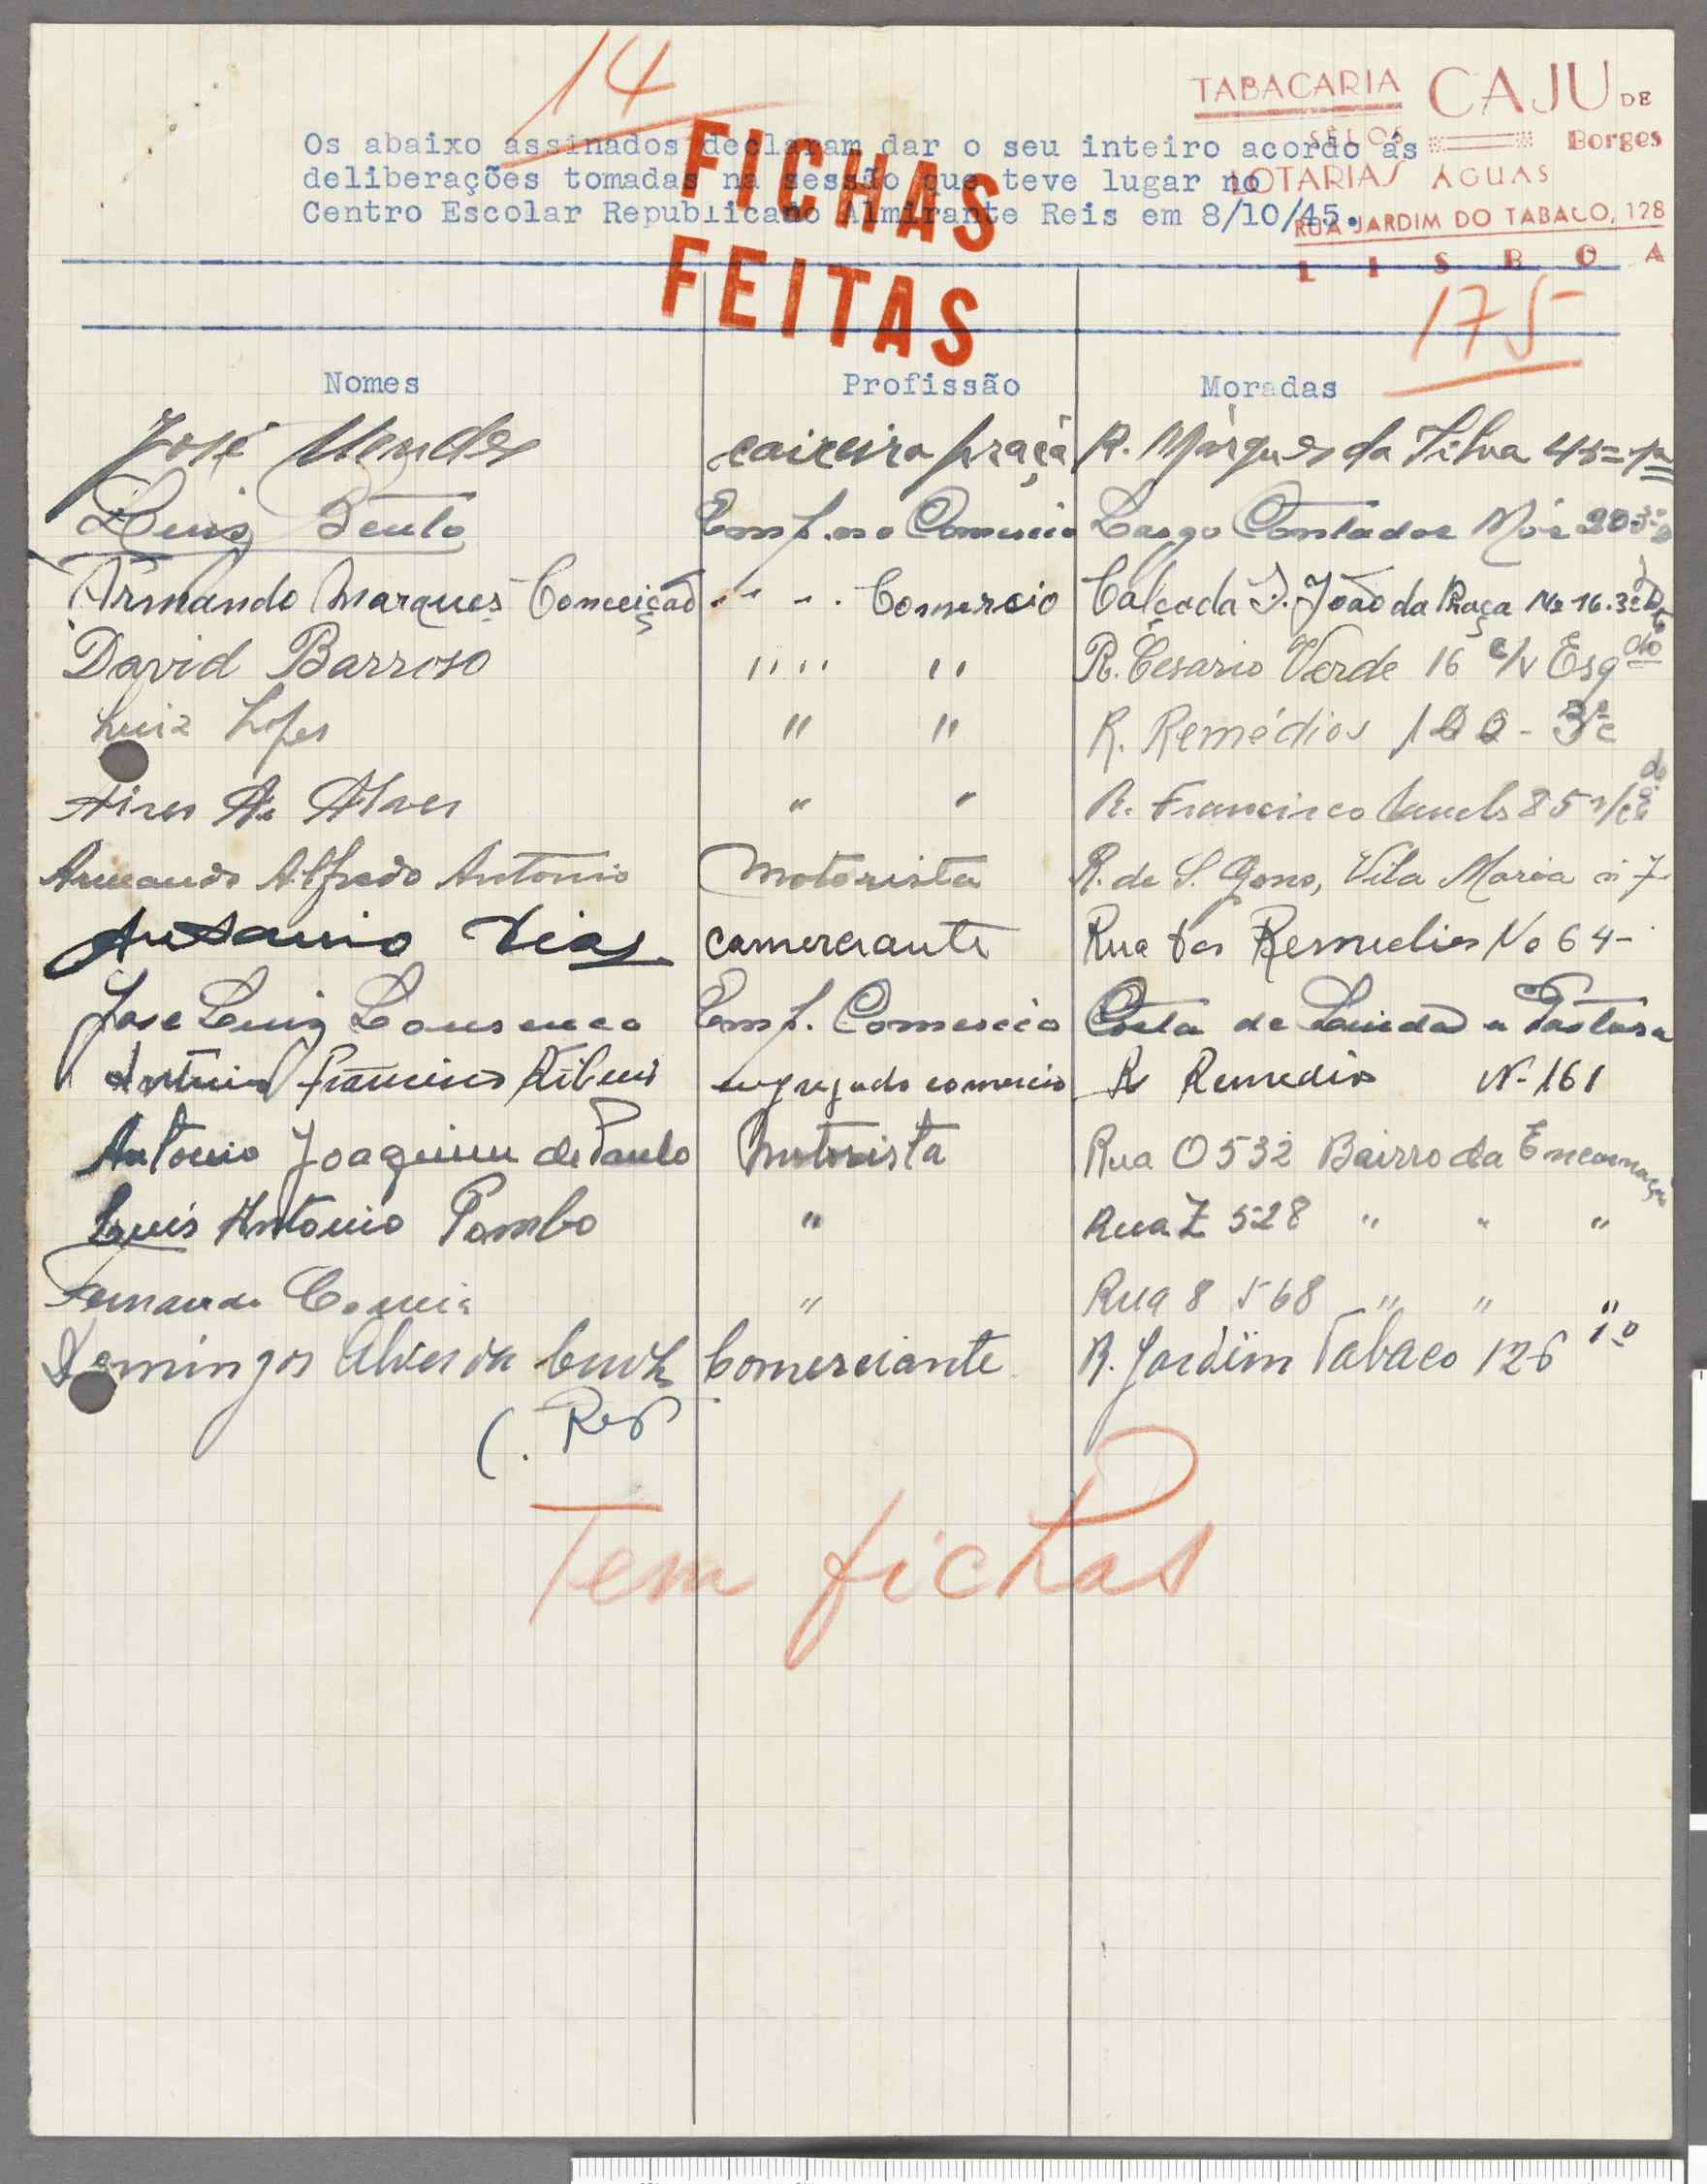 14
TABACARIA CAJU DE
SELOS Borges
LOTARIAS ÁGUAS
RUA JARDIM DO TABACO, 128
LISBOA
Os abaixo assinados declaram dar o seu inteiro acordo ás
deliberações tomadas na sessão que teve lugar no
Centro Escolar Republicano Almirante Reis em 8/10/45.
FICHAS
FEITAS
175
Nomes Profissão Moradas
José Mendes caixeiro praça R. Márques da Silva 45=
Luis Bento Emp. no Comercio Largo Contador Mór 20
Armando Marques Conceição " " Comercio Calçada S. João da Praça Nº 16.3º
David Barroso " " " R. Cesario Verde 16 c/v Esqdo
Luiz Lopes " " R. Remédios
Aires A. Alves " " R. Francisco 85 r/c
Armando Alfredo Antonio Motorista R. de S. Gens, Vila Maria nº 7
Antonio Dias comerciante Rua dos Remedios No 64-
Jose Luiz Lourenco Emp. Comercio
Antonio Francisco Ribeiro empregado comercio R Remedios Nº 161
Antonio Joaquim de Paulo Motorista Rua O 532 Bairro da Encarnação
Luís Antonio Pombo " Rua Z 528 " " "
Fernando Correia " Rua 8 568 " " "
Domingos Alves da Comerciante R. Jardim Tabaco 126 1º
Tem fichas